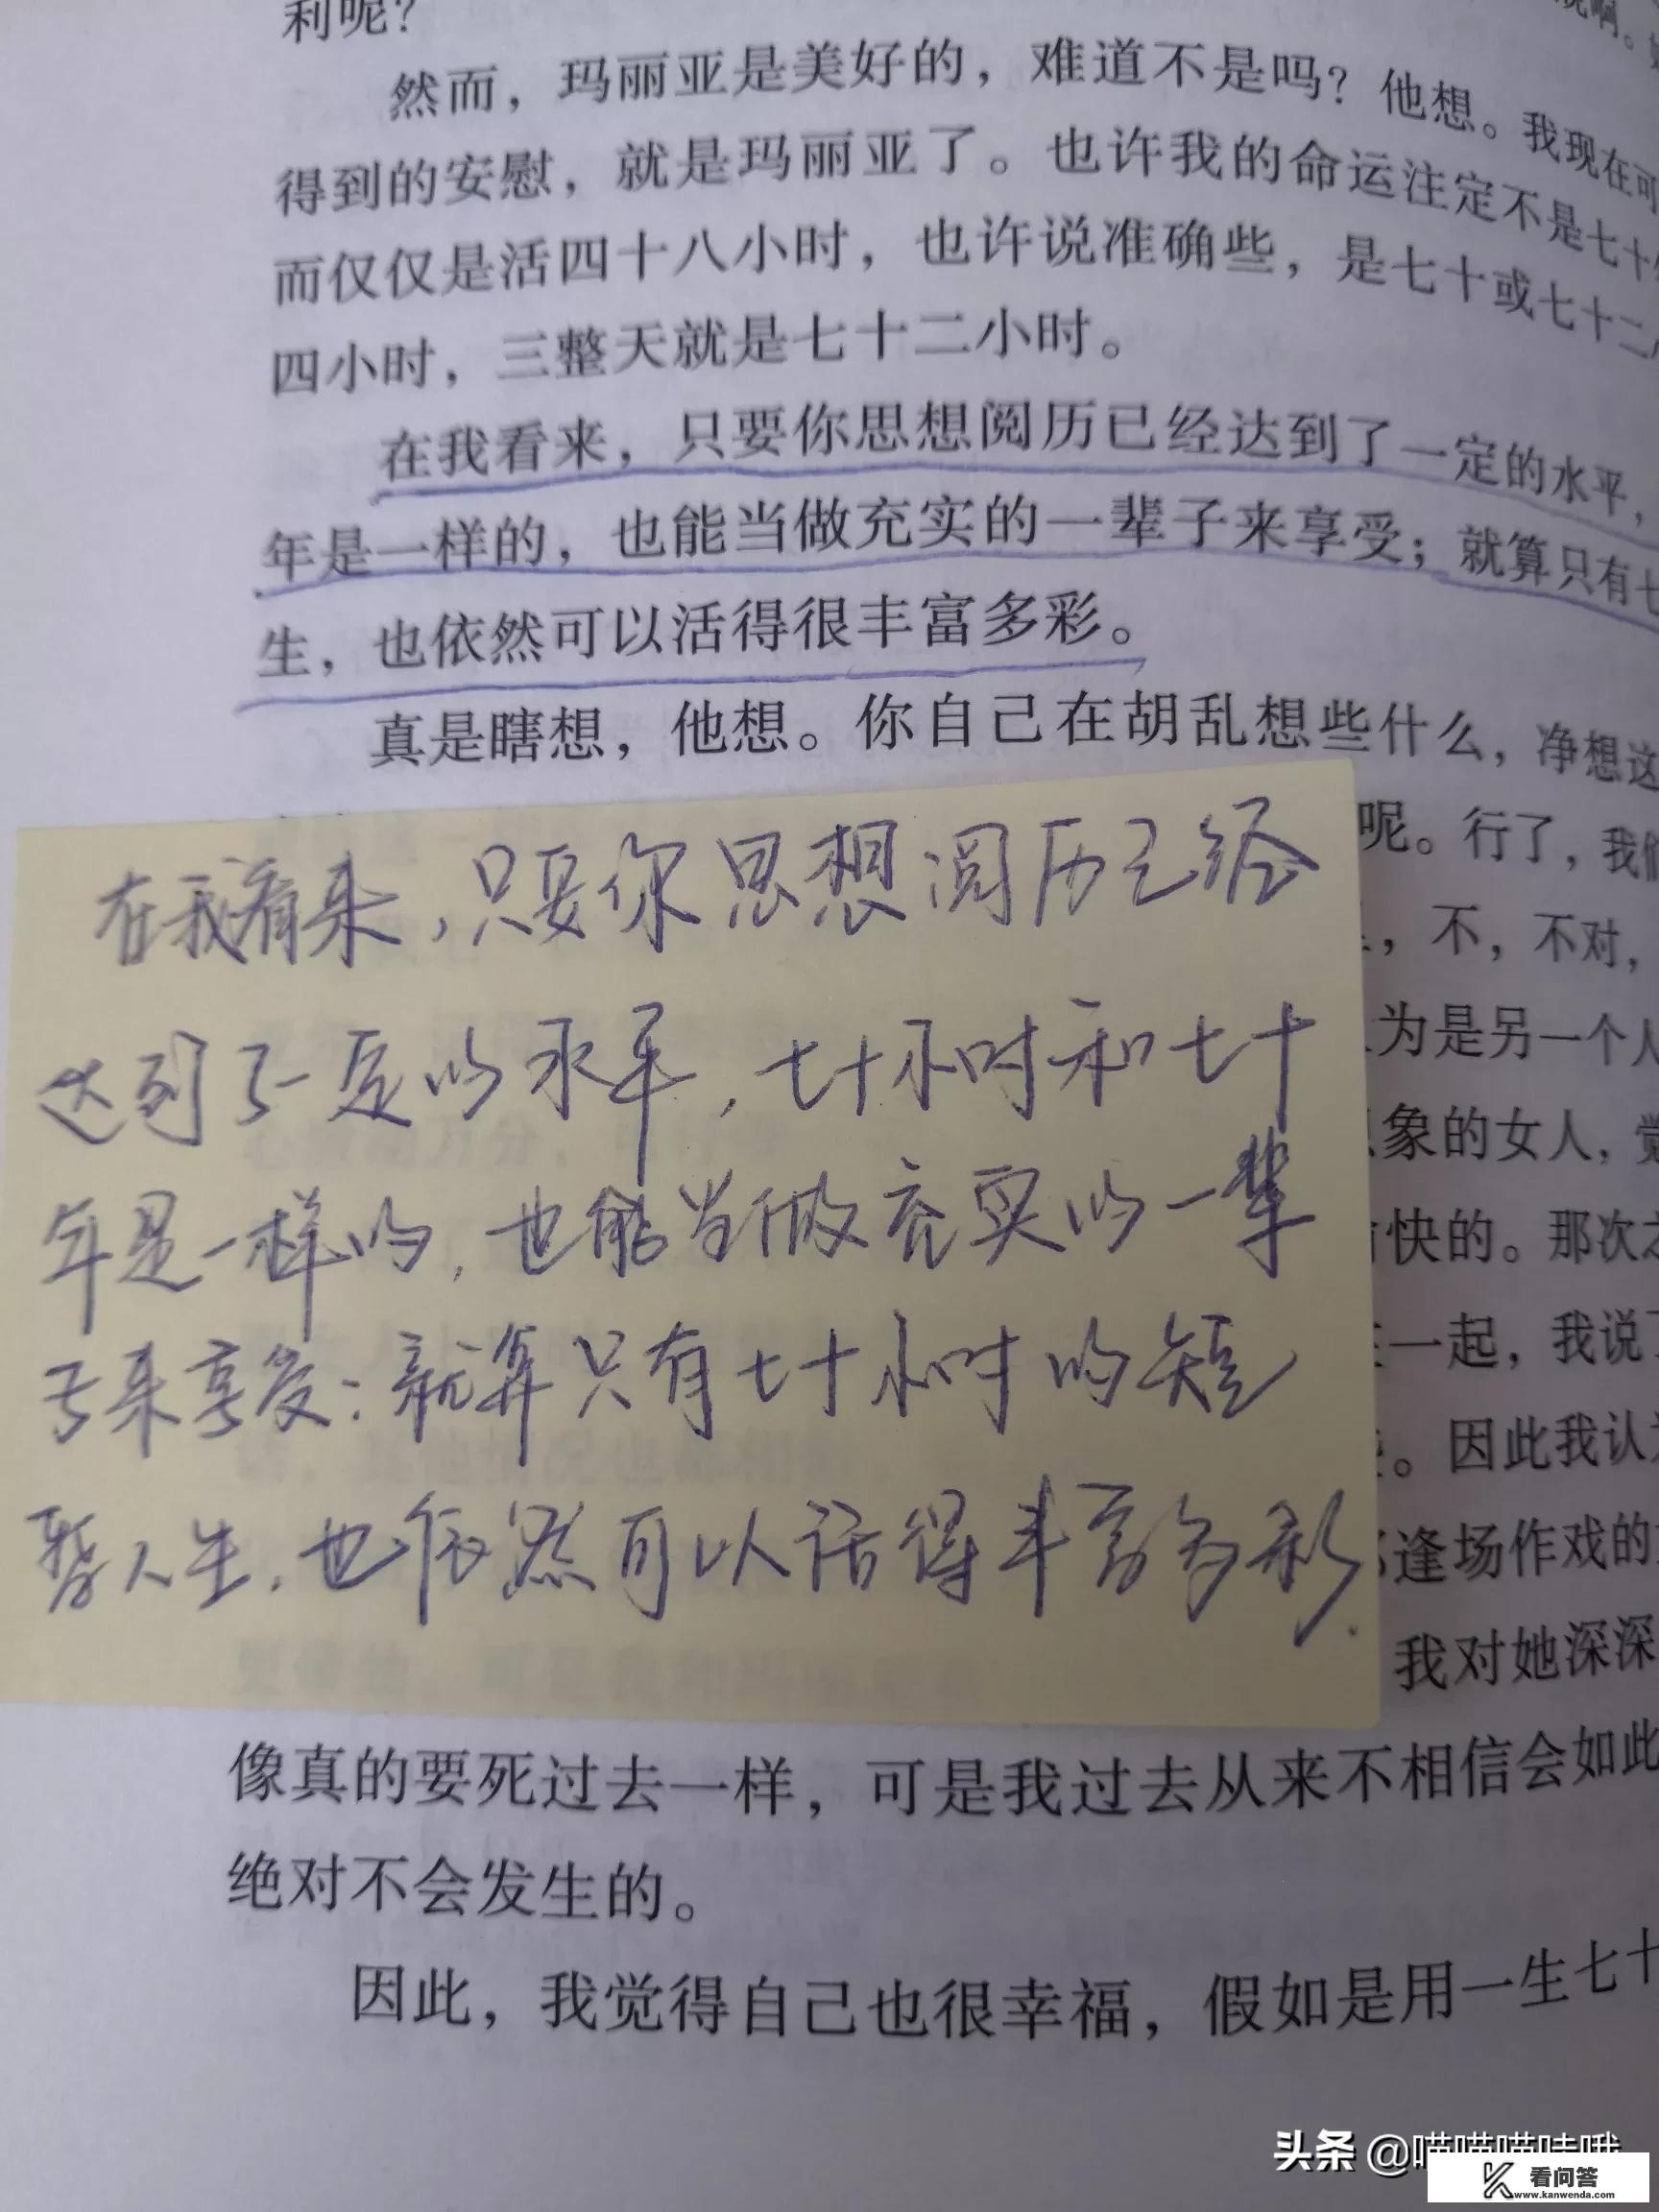 利呢？
然而，玛丽亚是美好的，难道不是吗？他想。我现在可
得到的安慰，就是玛丽亚了。也许我的命运注定不是七十
而仅仅是活四十八小时，也许说准确些，是七十或七十二
四小时，三整天就是七十二小时。
在我看来，只要你思想阅历已经达到了一定的水平，
年是一样的，也能当做充实的一辈子来享受；就算只有七
生，也依然可以活得很丰富多彩。
真是瞎想，他想。你自己在胡乱想些什么，净想这
呢。行了，我们
，不，不对，
为是另一个人
象的女人，觉
快的。那次之
一起，我说了
。因此我认为
逢场作戏的
我对她深深
在我看来，只要你思想阅历已经
达到了一定的水平，七十小时和七十
年是一样的，也能当做充实的一辈
子来享受；就算只有七十小时的短
暂人生，也依然可以活得丰富多彩.
像真的要死过去一样，可是我过去从来不相信会如此
绝对不会发生的。
因此，我觉得自己也很幸福，假如是用一生七十
头条 @喵喵喵哇哦
看问答
www.kanwenda.com